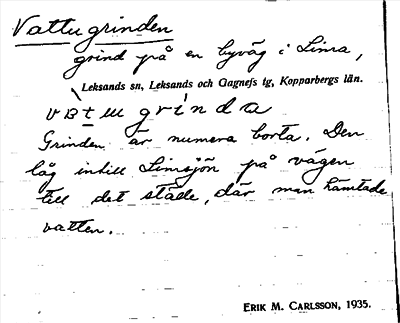 Vattugrinden
grind på en byväg i Lima,
Leksands sn, Leksands och Gagnefs tg, Kopparbergs län.
vatugrinda
Grinden är numera borta. Den
låg intill Limsjön på vägen
till det ställe, där man hämtade
vatten.
ERIK M. CARLSSON, 1935.